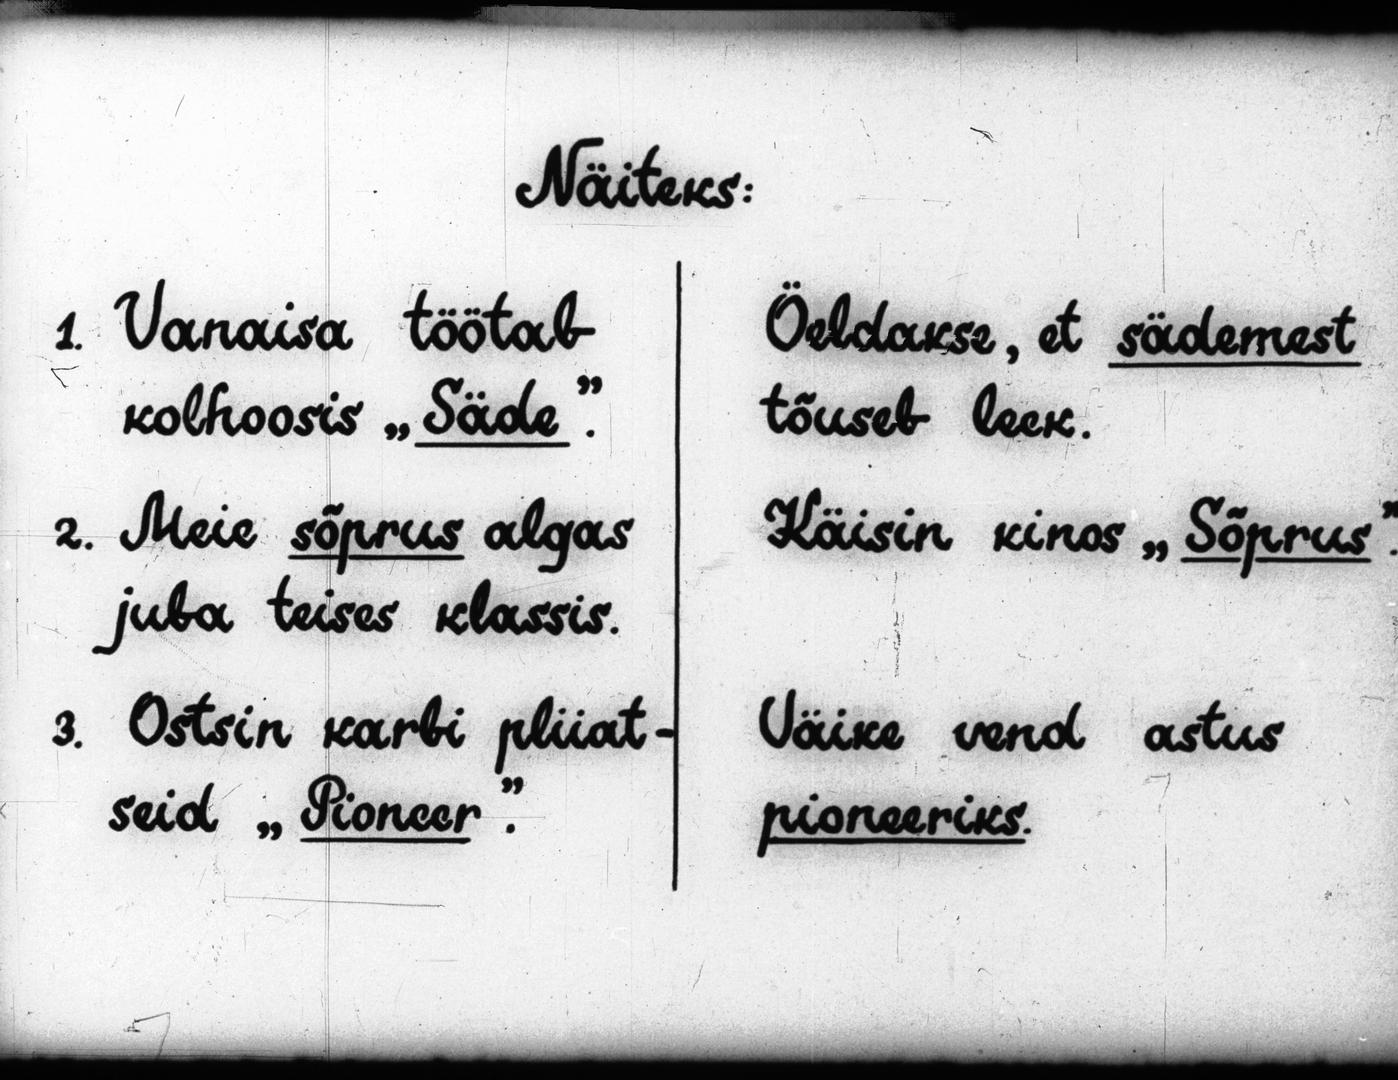 Näiteks:
1. Vanaisa töötab
kolhoosis „Säde”.
2. Meie sõprus algas
juba teises klassis.
3. Ostsin karbi pliiat-
seid „Pioneer”.
Öeldakse, et sädemest
tõuseb leek.
Käisin kinos „Sõprus”.
Väike vend astus
pioneeriks.